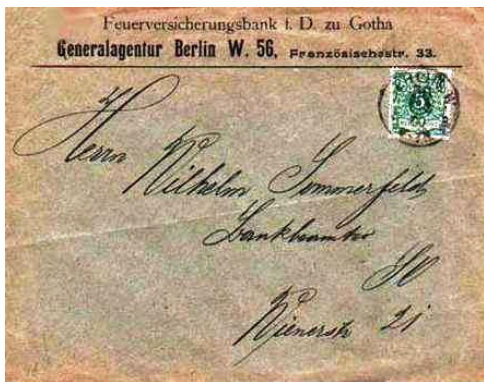 Feuerversicherungsbank f. D. zu Gotha
Generalagentur Berlin W. 56, Französischestr. 33.
BERLIN W
5
Herrn
Wilhelm Sommerfeld
Bankbeamter
SO
Wienerstr 21